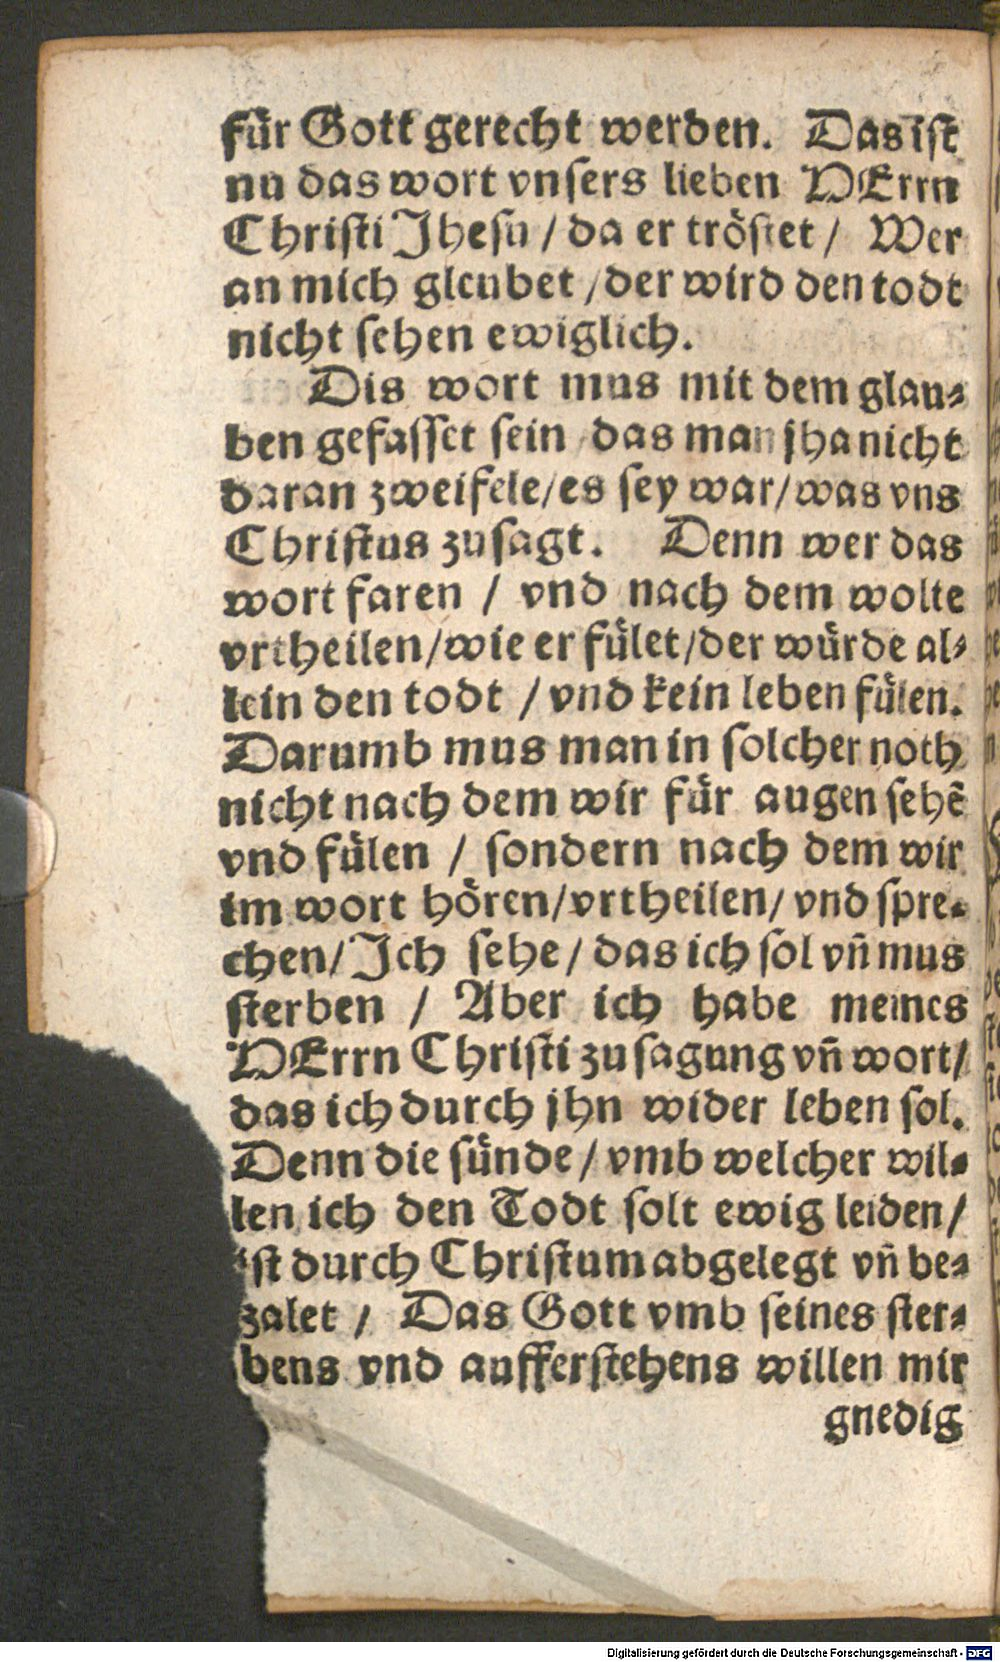 für Gott gerecht werden. Das ist
nu das wort vnsers lieben HErrn
Christi Jhesu / da er tröstet / Wer
an mich gleubet / der wird den todt
nicht sehen ewiglich.
Dis wort mus mit dem glau⸗
ben gefasset sein das man jha nicht
daran zweifele / es sey war / was vns
Christus zusagt. Denn wer das
wort faren / vnd nach dem wolte
vrtheilen / wie er fület / der würde al⸗
lein den todt / vnd kein leben fülen.
Darumb mus man in solcher noth
nicht nach dem wir für augen sehẽ
vnd fülen / sondern nach dem wir
im wort hören / vrtheilen / vnd spre⸗
chen / Ich sehe / das ich sol vñ mus
sterben / Aber ich habe meines
HErrn Christi zusagung vñ wort /
das ich durch jhn wider leben sol.
Denn die sünde / vmb welcher wil⸗
len ich den Todt solt ewig leiden /
ist durch Christum abgelegt vñ be⸗
zalet / Das Gott vmb seines ster⸗
bens vnd aufferstehens willen mir
gnedig
Digitalisierung gefördert durch die Deutsche Forschungsgemeinschaft - DFG